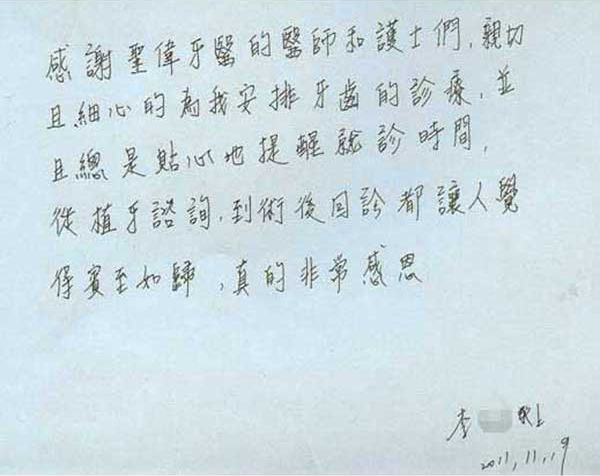 感謝聖偉牙醫的醫師和護士們，親切
且細心的為我安排牙齒的診療，並
且總是貼心地提醒就診時間，
從植牙諮詢，到術後回診都讓人覺
得賓至如歸，真的非常感恩
李 敬上
2011.11.19